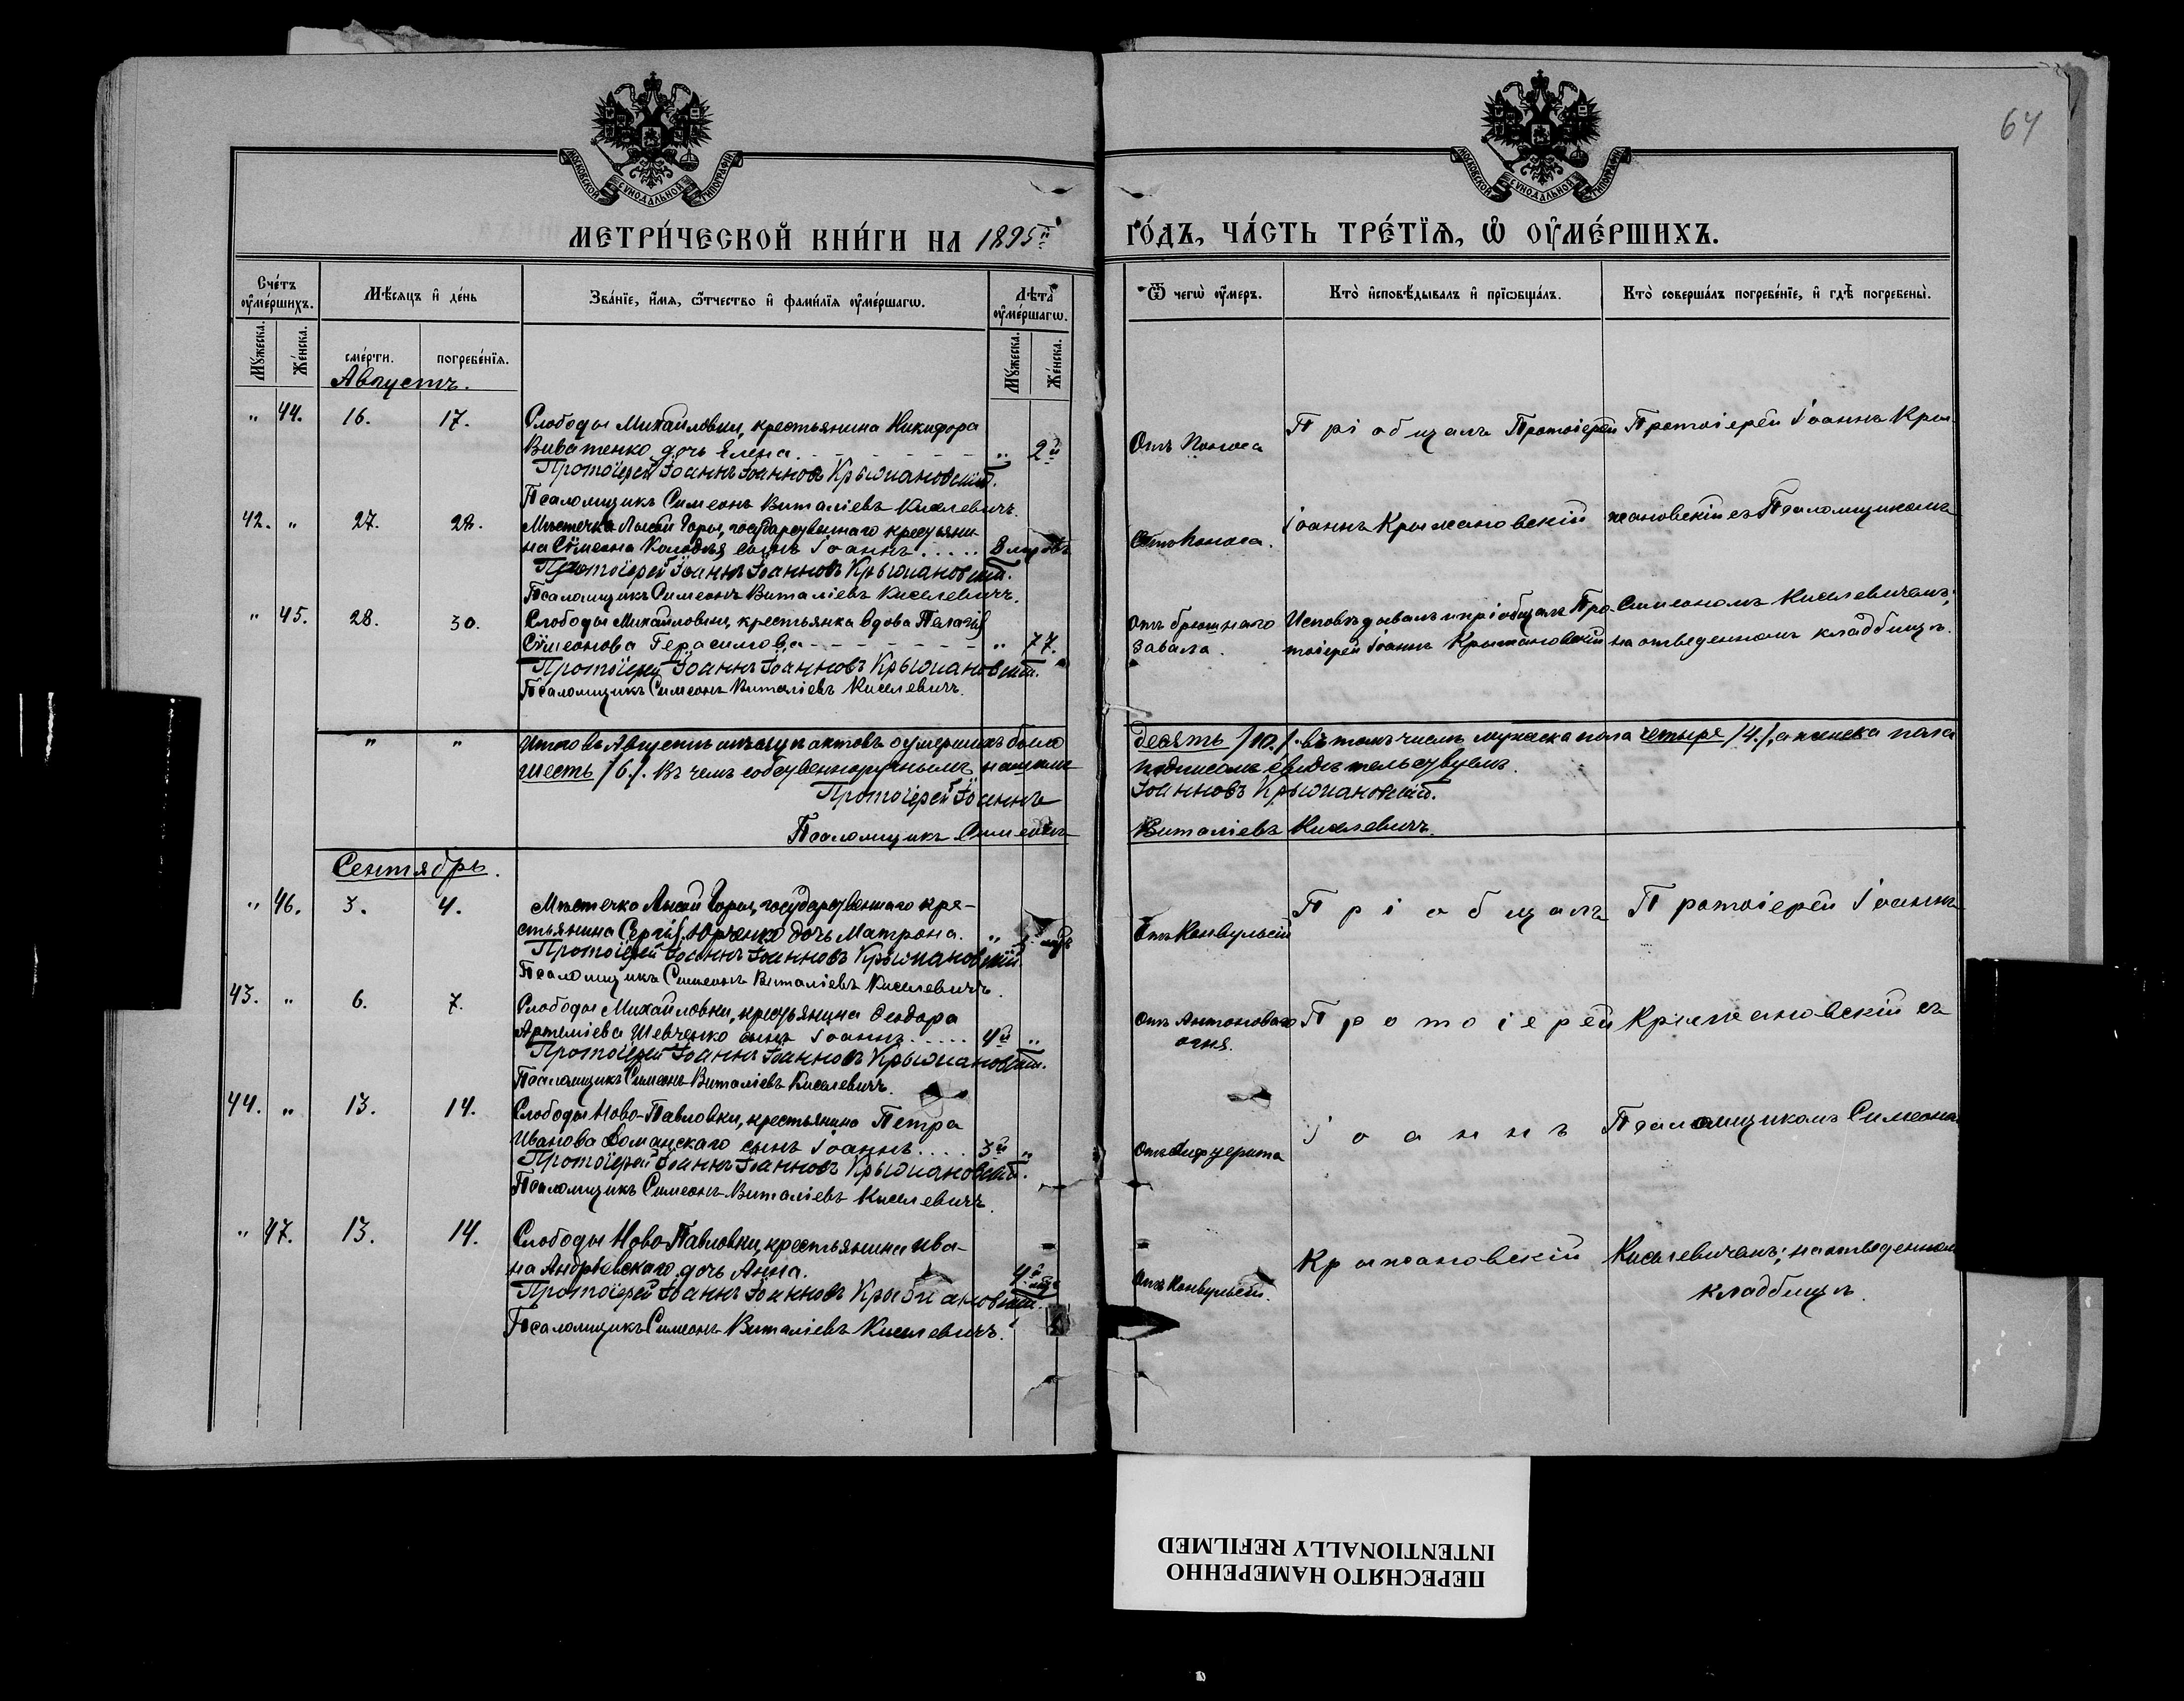 64
МОСКОВСКОЙ СУНОДАЛЬНОЙ ТИПОГРАФІИ.
МОСКОВСКОЙ СУНОДАЛЬНОЙ ТИПОГРАФІИ.
МЕТРИ́ЧЕСКОЙ КНИ́ГИ НА 1895й
ГО́ДЪ, ЧА́СТЬ ТРЕ́ТЇѦ, Ѡ ОУ҆МЕ́РШИХЪ.
Сче́тъ оу҆ме́ршихъ.
Мѣ́сѧцъ и҆ де́нь
Зва́нїе, и҆́мѧ, ѻ҆́тчество и҆ фами́лїѧ оу҆ме́ршагѡ.
Лѣта̀ оу҆ме́ршагѡ.
Мꙋ́жеска.
Же́нска.
сме́рти.
погребе́нїѧ.
Мꙋ́жеска.
Же́нска.
Ѿ чегѡ̀ оу҆́меръ.
Кто̀ и҆сповѣ́дывалъ и҆ прїѡбща́лъ.
Кто̀ соверша́лъ погребе́нїе, и҆ гдѣ̀ погребены̀.
Августъ.
" 44. 16. 17. Слободы Михайловки, крестьянина Никифора
Виватенко дочь Елена. " 2й
Протоіерей Іоаннъ Іоанновъ Крыжановскій.
Псаломщикъ Симеонъ Виталіевъ Киселевичъ.
Отъ поноса
Пріобщалъ Протоіерей
Протоіерей Іоаннъ Кры-
42. " 27. 28. Мѣстечка Лысой Горы, государственнаго крестьяни-
на Сѵмеона Колодѣя сынъ Іоаннъ . . . . . 8
Протоіерей Іоаннъ Іоанновъ Крыжановскій.
Псаломщикъ Симеонъ Виталіевъ Киселевичъ.
Отъ поноса.
Іоаннъ Крыжановскій
жановскій съ Псаломщикомъ
" 45. 28. 30. Слободы Михайловки, крестьянка вдова Пелагія
Сѵмеонова Герасимова " 77.
Протоіерей Іоаннъ Іоанновъ Крыжановскій.
Псаломщикъ Симеонъ Виталіевъ Киселевичъ.
Отъ брюшнаго
завала.
Исповѣдывалъ и пріобщалъ Про-
тоіерей Іоаннъ Крыжановскій
Симеономъ Киселевичемъ;
на отведенномъ кладбищѣ.
" " Итого въ Августѣ мѣсяцѣ актовъ о умершихъ было
десять /10./. въ томъ числѣ мужеска пола четыре /4./, а женска пола
шесть /6/. Въ чемъ собственноручнымъ нашимъ
подписомъ свидѣтельствуемъ.
Протоіерей Іоаннъ
Іоанновъ Крыжановскій.
Псаломщикъ Симеонъ
Виталіевъ Киселевичъ.
Сентябрь.
" 46. 3. 4. Мѣстечка Лысой Горы, государственнаго кре-
стьянина Сергія Юрченко дочь Матрона. "
Протоіерей Іоаннъ Іоанновъ Крыжановскій
Псаломщикъ Симеонъ Виталіевъ Киселевичъ.
Отъ Конвульсій
Пріобщалъ
Протоіерей Іоаннъ
43. " 6. 7. Слободы Михайловки, крестьянина Ѳеодора
Артеміева Шевченко сынъ Іоаннъ . . . . . 4й "
Протоіерей Іоаннъ Іоанновъ Крыжановскій.
Псаломщикъ Симеонъ Виталіевъ Киселевичъ.
Отъ Антонова
огня.
Протоіерей
Крыжановскій съ
44. " 13. 14. Слободы Ново-Павловки, крестьянина Петра
Иванова Доманскаго сынъ Іоаннъ . . . . 3й "
Протоіерей Іоаннъ Іоанновъ Крыжановскій.
Псаломщикъ Симеонъ Виталіевъ Киселевичъ.
Отъ Дифтерита
Іоаннъ
Псаломщикомъ Симеономъ
" 47. 13. 14. Слободы Ново-Павловки, крестьянина Ива-
на Андріевскаго дочь Анна.
Протоіерей Іоаннъ Іоанновъ Крыжановскій.
Псаломщикъ Симеонъ Виталіевъ Киселевичъ.
Отъ Конвульсій.
Крыжановскій
Киселевичемъ; на отведенномъ
кладбищѣ.
ПЕРЕСНЯТО НАМЕРЕННО
INTENTIONALLY REFILMED